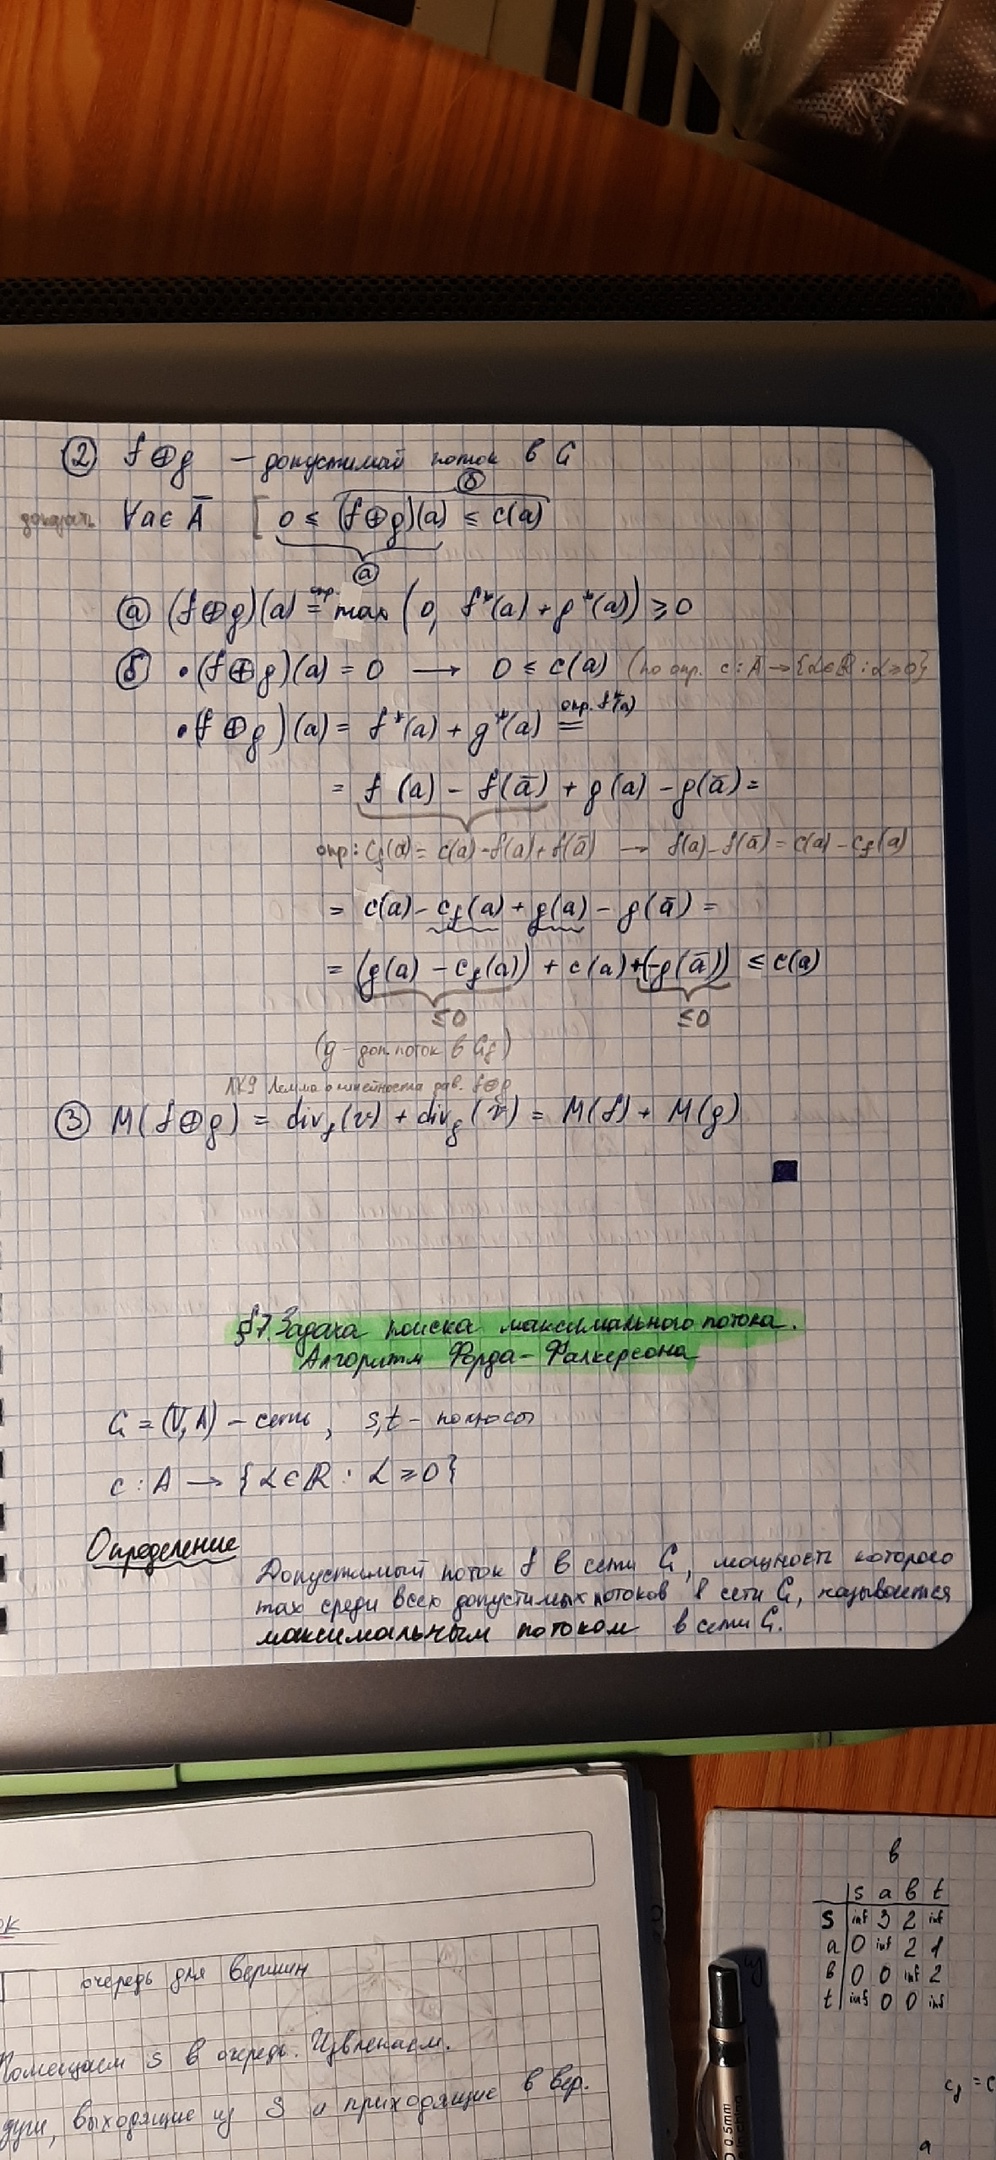 ② f⊕g — допустимый поток в G
доказать ∀a∈Ā [ 0 ≤ (f⊕g)(a) ≤ c(a)
б
а
ⓐ (f⊕g)(a) опр. = max (0, f*(a) + g*(a)) ≥ 0
ⓑ • (f⊕g)(a) = 0 → 0 ≤ c(a) (по опр. c: Ā → {α∈ℝ : α ≥ 0}
• (f⊕g)(a) = f*(a) + g*(a) опр. f*(a) =
= f(a) - f(ā) + g(a) - g(ā) =
опр: c_f(a) = c(a) - f(a) + f(ā) → f(a) - f(ā) = c(a) - c_f(a)
= c(a) - c_f(a) + g(a) - g(ā) =
= (g(a) - c_f(a)) + c(a) + (-g(ā)) ≤ c(a)
≤0 ≤0
(g - доп. поток в G_f)
ЛК9 Лемма о див. f⊕g
③ M(f⊕g) = div_f(v) + div_g(v) = M(f) + M(g)
§7. Задача поиска максимального потока.
Алгоритм Форда - Фалкерсона
G = (V, A) - сеть, s,t - полюсы
c : A → {α∈ℝ : α ≥ 0}
Определение
Допустимый поток f в сети G, мощность которого
max среди всех допустимых потоков в сети G, называется
максимальным потоком в сети G.
ок
очередь для вершин
Помещаем s в очередь. Извлекаем.
дуги, выходящие из s и приходящие в вер.
в
s a b t
s inf 3 2 inf
a 0 inf 2 1
b 0 0 inf 2
t inf 0 0 inf
c_f = c
a
0.5mm